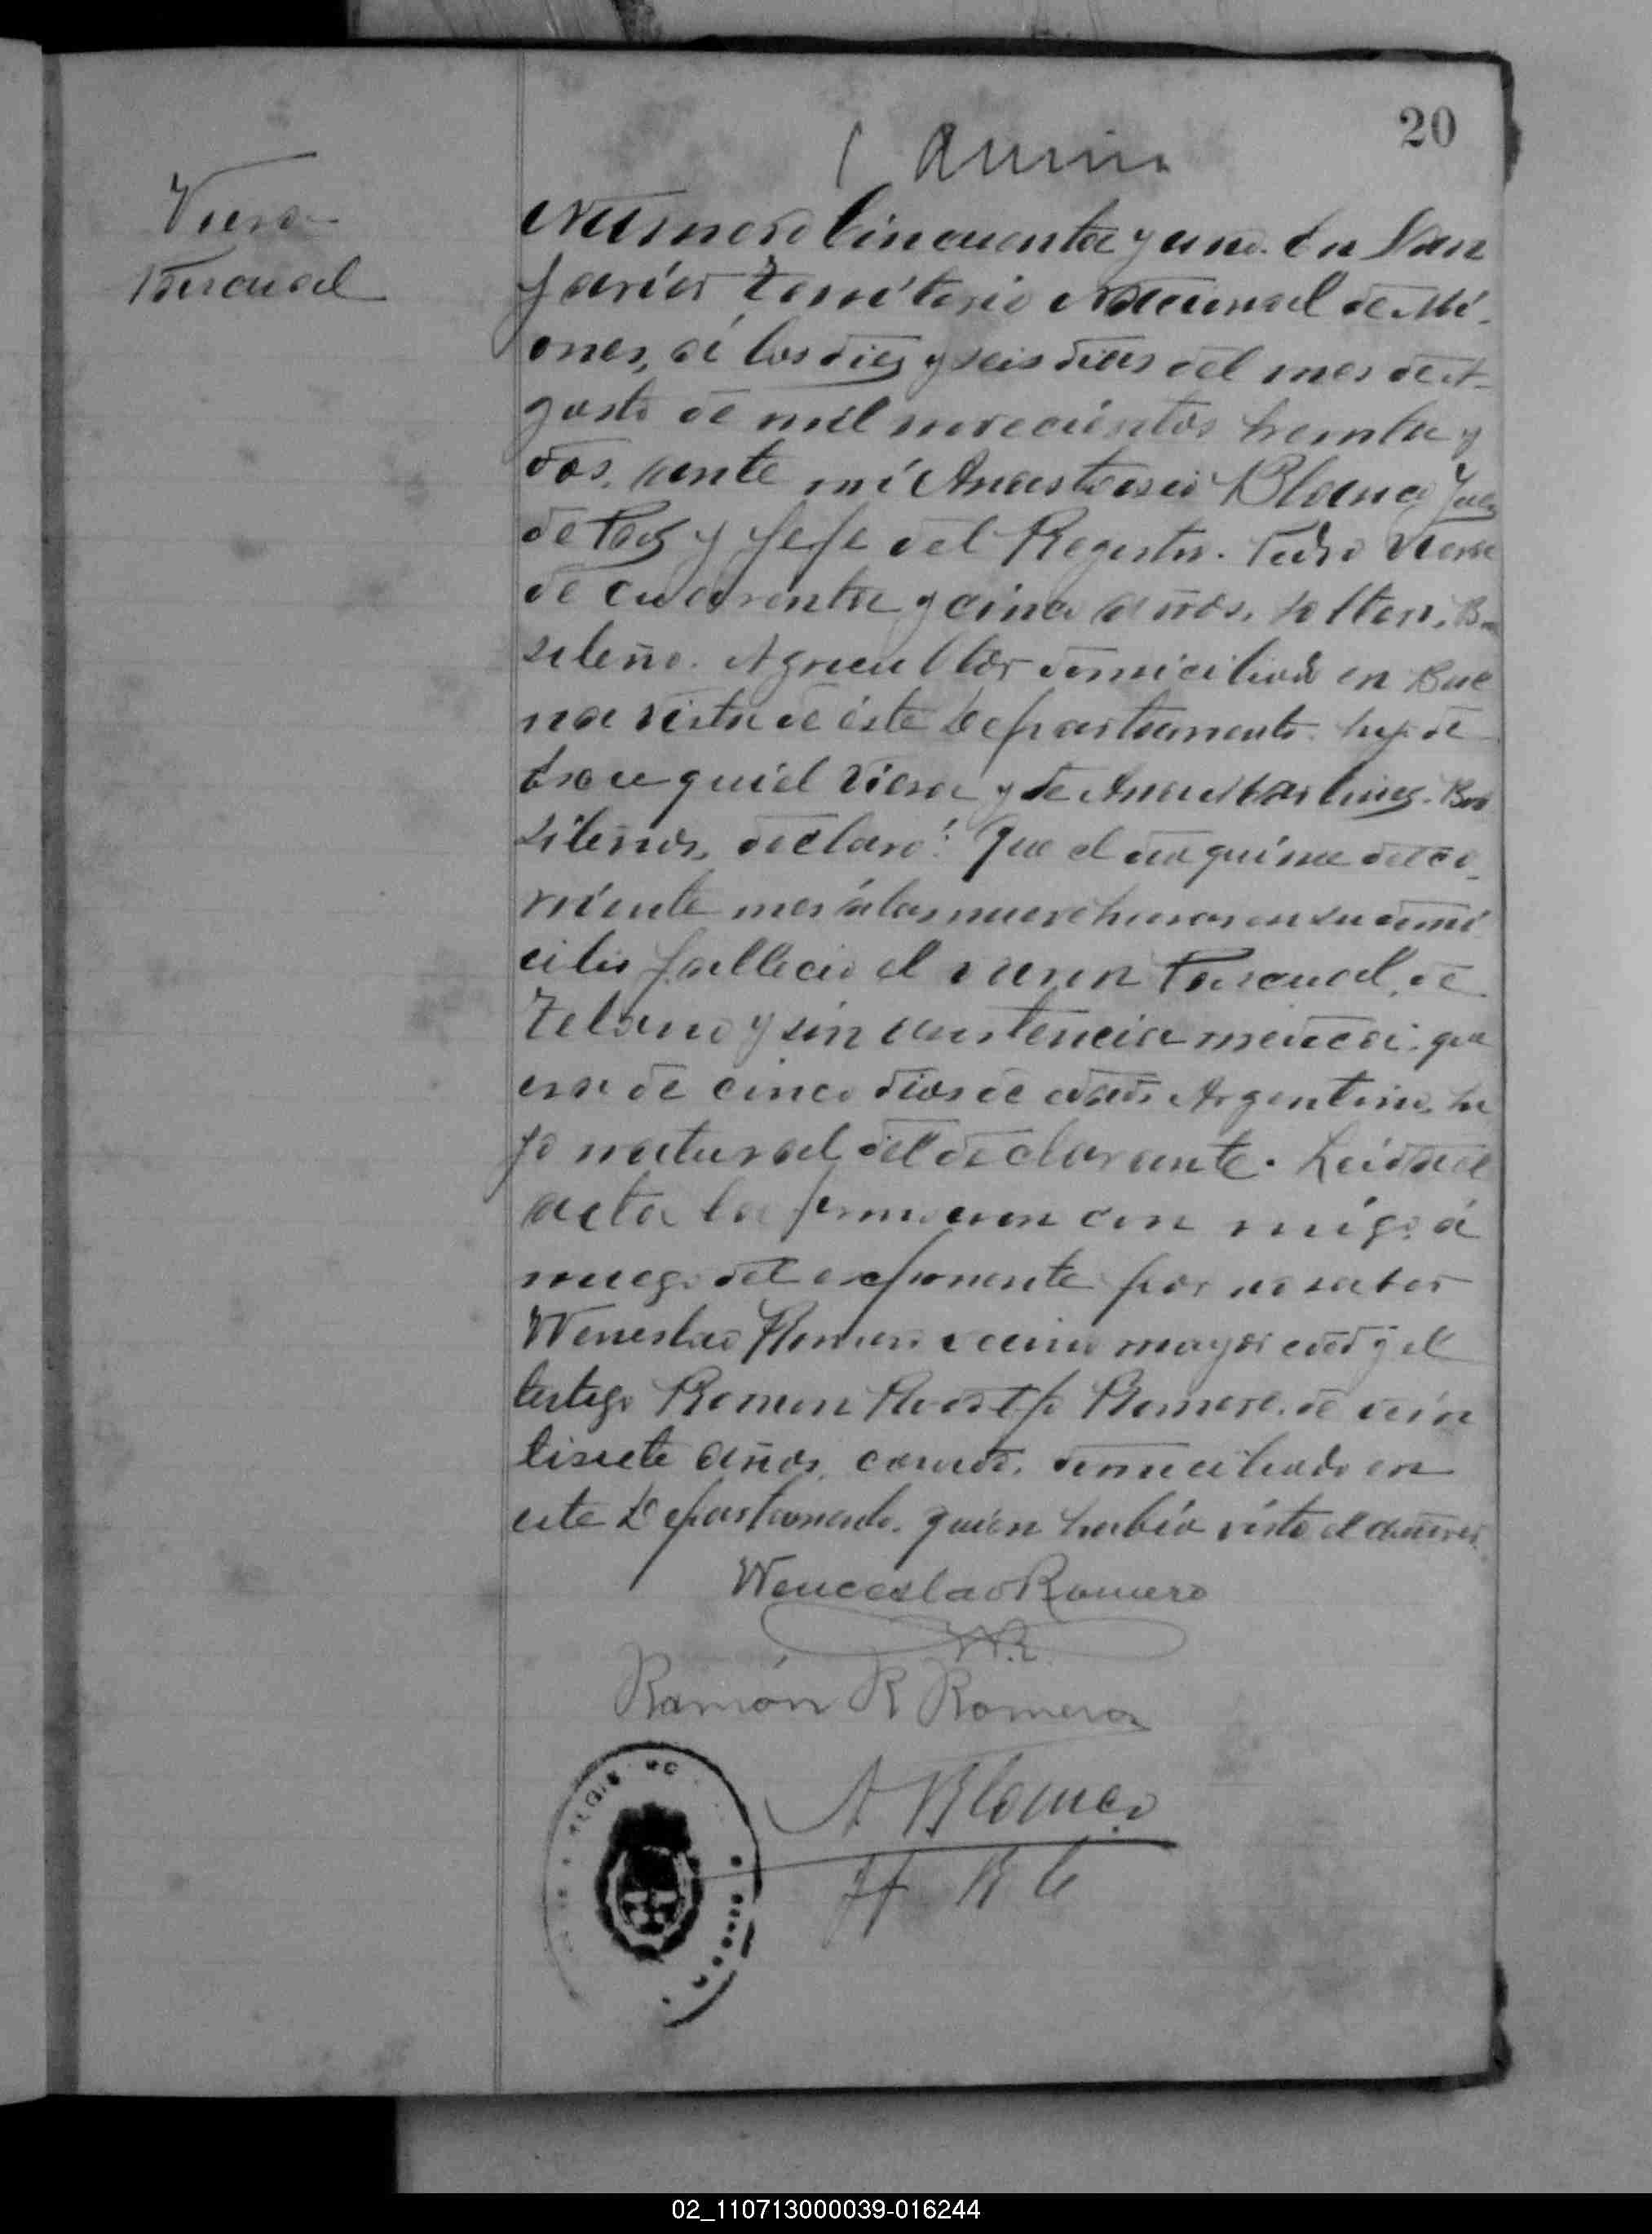 20
Viera
Pascual
Numero Cincuenta y uno. En San
Javier Territorio Nacional de Mi-
ones, á los diez y seis dias del mes de A-
gosto de mil novecientos treinta y
dos, ante mi Anastasio Blanco Juez
de Paz y Jefe del Registro. Pedro Viera
de cuarenta y cinco años, soltero, Bra
sileño. Agricultor domiciliado en Bue
na vista de éste Departamento. hijo de
Esequiel Viera y de Ana Bra
sileños, declaró: Que el dia quince del co-
rriente mes á las nueve horas en su domi
cilio fallecio el varon Pascual, de
Tetano y sin asistencia medica; que
era de cinco dias de edad, Argentino, hi
jo natural del declarante. Leida el
acta la firmaron con migo, á
ruego del exponente por no saber
Weneslao Romero vecino mayor edad y el
testigo Ramon Rodolfo Romero, de vein
tisiete años, casado, domiciliado en
este Departamento, quien habia visto el
Wenceslao Romero
W.R.
Ramón R Romero
A Blanco
02_110713000039-016244